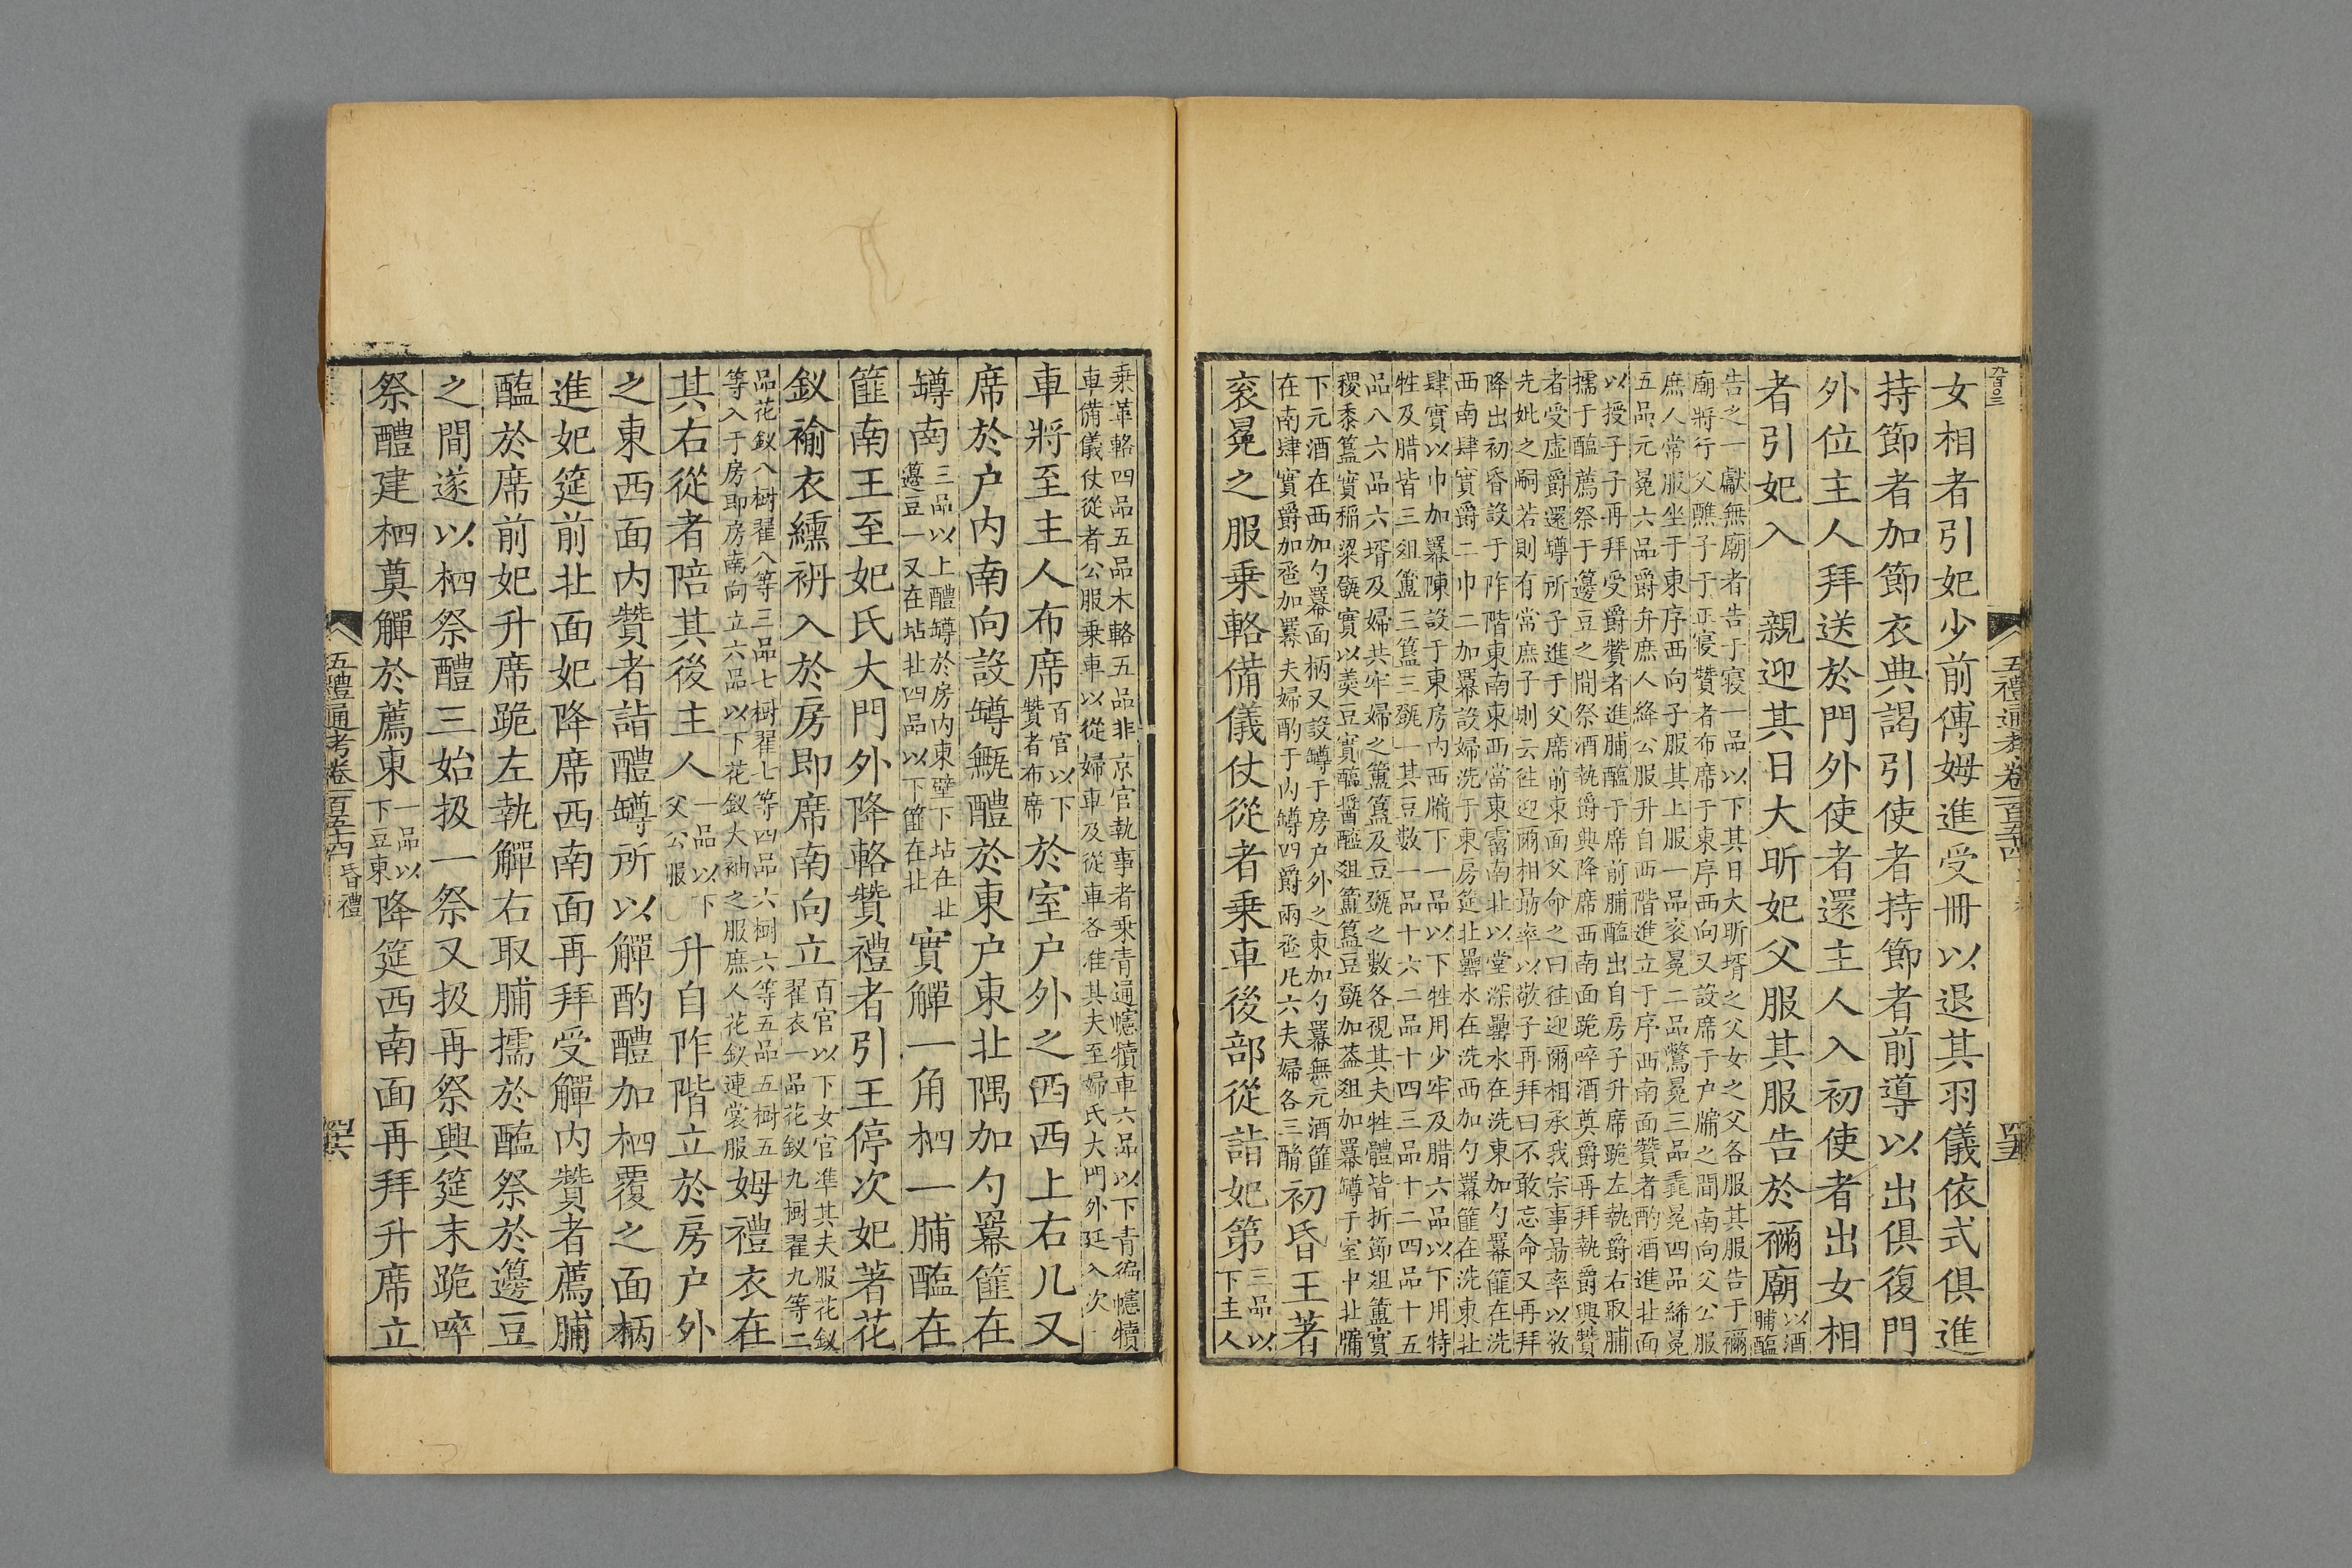 五禮通考卷一百五十四
女相者引妃少前傅姆進受冊以退其羽儀依式俱進
持節者加節衣典謁引使者持節者前導以出俱復門
外位主人拜送於門外使者還主人入初使者出女相
者引妃入　親迎其日大昕妃父服其服告於禰廟以酒脯醢
告之一獻無廟者告于寢一品以下其日大昕壻之父女之父各服其服告于禰
廟將行父醮子于正寢贊者布席于東序西向又設席于户牖之間南向父公服
庶人常服坐于東序西向子服其上服一品衮冕二品鷩冕三品毳冕四品絺冕
五品元冕六品爵弁庶人絳公服升自西階進立于序西南面贊者酌酒進北面
以授子子再拜受爵贊者進脯醢于席前脯醢出自房子升席跪左執爵右取脯
擩于醢薦祭于籩豆之間祭酒執爵興降席西南面跪啐酒奠爵再拜執爵興贊
者受虛爵還罇所子進于父席前東面父命之曰往迎爾相承我宗事勗率以敬
先妣之嗣若則有常庶子則云往迎爾相勗率以敬子再拜曰不敢忘命又再拜
降出初昏設于阼階東南東西當東霤南北以堂深罍水在洗東加勺羃篚在洗
西南肆實爵二巾二加羃設婦洗于東房筵北罍水在洗西加勺羃篚在洗東北
肆實以巾加羃陳設于東房内西牖下一品以下牲用少牢及腊六品以下用特
牲及腊皆三俎簠三簋三㽅一其豆數一品十六二品十四三品十二四品十五
品八六品六壻及婦共牢婦之簠簋及豆㽅之數各視其夫牲體皆折節俎簠實
稷黍簋實稻梁㽅實以羹豆實醢醬醯俎簠簋豆㽅加葢俎加羃罇于室中北牖
下元酒在西加勺羃面柄又設罇于房户外之東加勺羃無元酒篚
在南肆實爵加巹加羃夫婦酌于内罇四爵兩巹凡六夫婦各三酳初昏王著
衮冕之服乗輅備儀仗從者乗車後部從詣妃第三品以下主人
乗革輅四品五品木輅五品非京官執事者乗青通幰犢車六品以下青徧幰犢
車備儀仗從者公服乗車以從婦車及從車各准其夫至婦氏大門外廷入次
車將至主人布席百官以下贊者布席於室户外之西西上右几又
席於户内南向設罇甒醴於東户東北隅加勺羃篚在
罇南三品以上醴罇於房内東壁下坫在北籩豆一又在坫北四品以下篚在北實觶一角柶一脯醢在
篚南王至妃氏大門外降輅贊禮者引王停次妃著花
釵褕衣纁袡入於房即席南向立百官以下女官準其夫服花釵翟衣一品花釵九樹翟九等二
品花釵八樹翟八等三品七樹翟七等四品六樹六等五品五樹五
等入于房即房南向立六品以下花釵大袖之服庶人花釵連裳服姆禮衣在
其右從者陪其後主人一品以下父公服升自阼階立於房户外
之東西面内贊者詣醴罇所以觶酌醴加柶覆之面柄
進妃筵前北面妃降席西南面再拜受觶内贊者薦脯
醢於席前妃升席跪左執觶右取脯擩於醢祭於籩豆
之間遂以柶祭醴三始扱一祭又扱再祭興筵末跪啐
祭醴建柶奠觶於薦東一品以下豆東降筵西南面再拜升席立
五禮通考卷一百五十四　昏禮